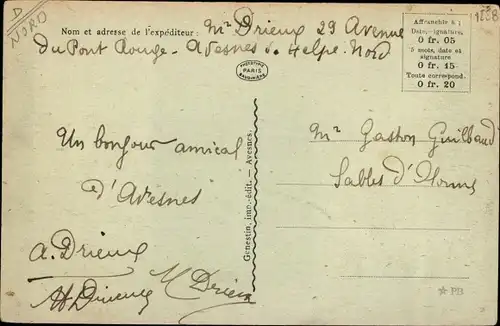 D
NORD
1238
Nom et adresse de l'expéditeur : Mr Drieux 29 Avenue
Du Pont Rouge - Avesnes s/ Helpe Nord
Affranchir à :
Date, signature,
0 fr. 05
5 mots, date et
signature
0 fr. 15
Toute correspond.
0 fr. 20
PARIS
Un bonjour amical
d'Avesnes
A. Drieux
Drieux
M Drieux
Genestin, imp.-édit. - Avesnes.
Mr Gaston Guilbaud
Sables d'Olonne
PB